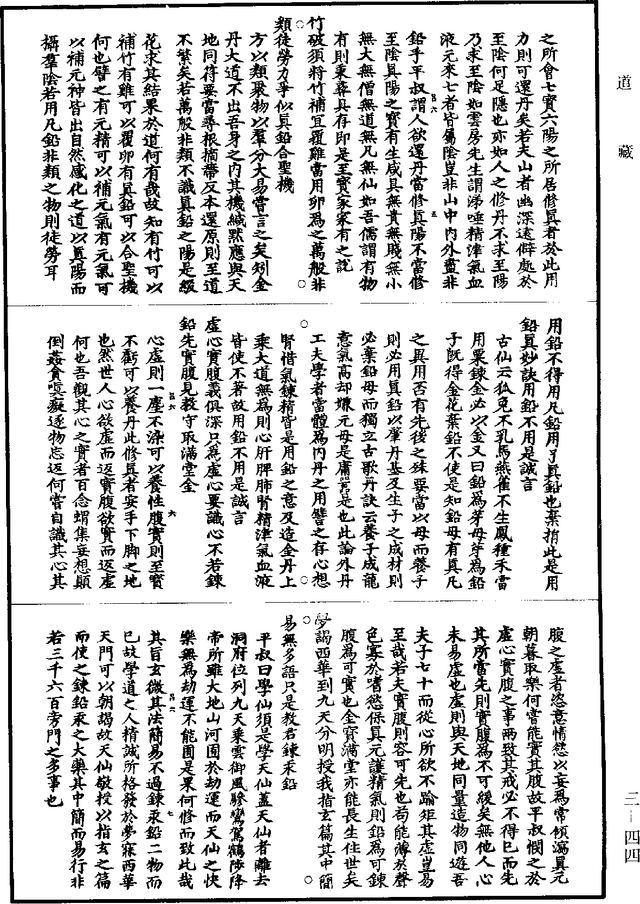 道藏
之所會七寶六陽之所居修真者於此用
力則可還丹矣若夫山者幽深遠僻處於
至陰何足隱也亦如人之修丹不求至陽
乃求至陰如雲房先生謂涕唾精津氣血
液元來七者皆屬陰豈非山中內外盡非
鉛乎平叔謂人欲還丹當修真陽不當修
至陰真陽之寶有生咸具無貴無賤無小
無大無僧無道無凡無仙如吾儒謂有物
有則秉彞具存即是至寶家家有之說
竹破須將竹補宜覆雞當用卵為之萬般非
類徒勞力爭似真鉛合聖機
方以類聚物以羣分大易嘗言之矣矧金
丹大道不出吾身之內其機緘默應與天
地同符要當尋根摘蔕反本還原則至道
不繁矣若萬般非類不識真鉛之陽是緩
花求其結果於道何有哉故知有竹可以
補竹有雞可以覆卵有真鉛可以合聖機
何也譬之有元精可以補元氣有元氣可
以補元神皆出自然感化之道以真陽而
攝羣陰若用凡鉛非類之物則徒勞耳
用鉛不得用凡鉛用了真鉛也棄捐此是用
鉛真妙訣用鉛不用是誠言
古仙云狐兔不乳馬燕雀不生鳳種禾當
用粟鍊金必以金又曰鉛為芽母芽為鉛
子既得金花棄鉛不使是知鉛母有真凡
之異用否有先後之殊要當以母而養子
則必用真鉛以肇丹基及生子之成材則
必棄鉛母而獨立古歌丹訣云養子成龍
意氣高却嫌元母是庸常是也此論外丹
工夫學者當體為內丹之用譬之存心想
腎惜氣鍊精皆是用鉛之意及造金丹上
乘大道無為則心肝脾肺腎精津氣血液
皆使不著故用鉛不用是誠言
虛心實腹義俱深只為虛心要識心不若鍊
鉛先實腹且教守取滿堂金
心虛則一塵不染可以養性腹實則至寶
不虧可以養丹此修真者安手下脚之地
也然世人心欲虛而返實腹欲實而返虛
何也吾觀其心之實者百念蝟集妄想顛
倒姦貪嗔癡逐物忘返何嘗自識其心其
腹之虛者恣意情慾以妄為常傾瀉真元
朝暮取樂何嘗能實其腹故平叔憫之於
虛心實腹之事兩致其戒必不得已而先
其所當先則實腹為不可緩矣無他人心
未易虛也虛則與天地同量造物同遊吾
夫子七十而從心所欲不踰矩其虛豈易
至哉若夫實腹則容可先也苟能薄於聲
色寡於嗜慾保真元護精氣則鉛為可鍊
腹為可實也金寶滿堂亦能長生住世矣
夢謁西華到九天分明授我指玄篇其中簡
易無多語只是教君鍊汞鉛
平叔曰學仙須是學天仙蓋天仙者離去
洞府位列九天乘雲御風驂鸞駕鶴陟降
帝所雖大地山河囿於劫運而天仙之快
樂無為劫運不能囿是果何修而致此哉
其旨玄微其法簡易不過鍊汞鉛二物而
已故學道之人精誠所格發於夢寐西華
天門可以朝謁故天仙敬授以指玄之篇
而使之鍊鉛汞之大藥其中簡而易行非
若三千六百旁門之多事也
三一四四